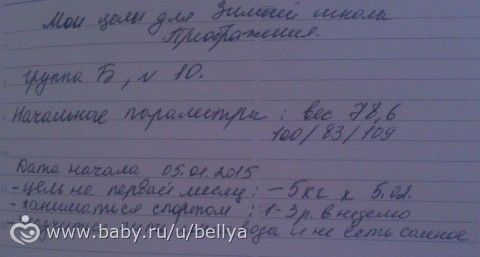 Мои цели для Зимней школа
Преображения.
группа Б, № 10.
Начальные параметры : вес 78,6
100/83/109
Дата начала 05.01.2015
- цель на первый месяц : -5 кг к 5.02.
- заниматься спортом : 1-3 р. в неделю
и не есть соленое
www.baby.ru/u/bellya